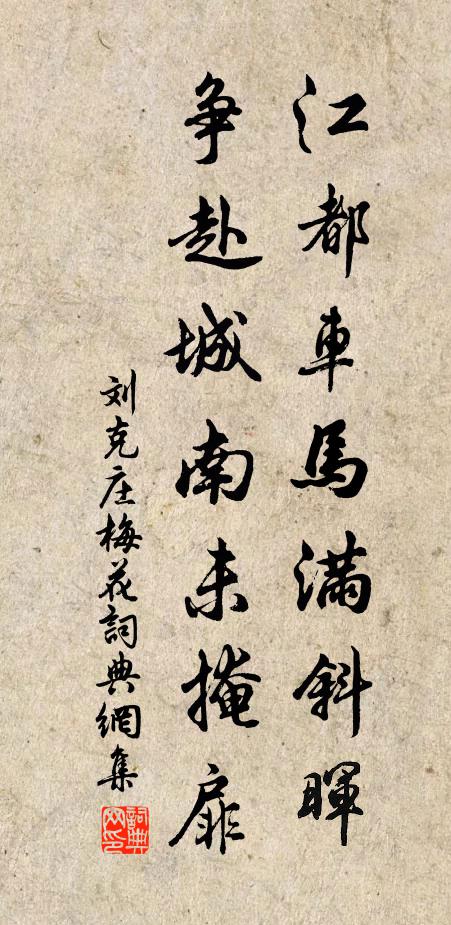 江都車馬滿斜暉
争赴城南未掩扉
刘克庄梅花詞典網集
詞典网印